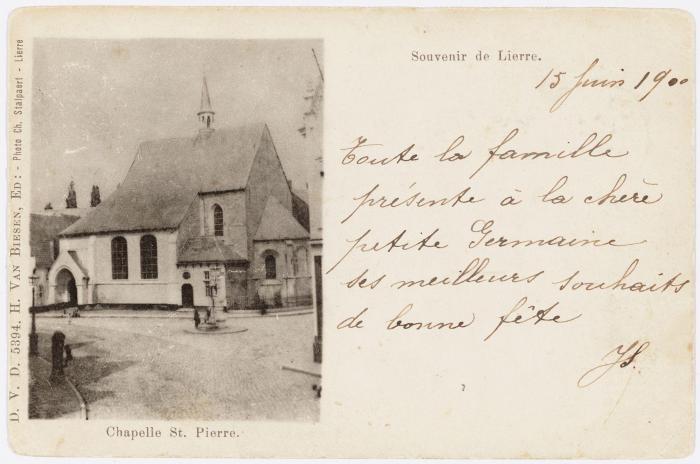 Souvenir de Lierre.
15 Juin 1900
Toute la famille
présente à la chère
petite Germaine
ses meilleurs souhaits
de bonne fête
JS.
Chapelle St. Pierre.
D. V. D. 5394. H. Van Biesen, Ed: - Photo Ch. Stalpaert - Lierre